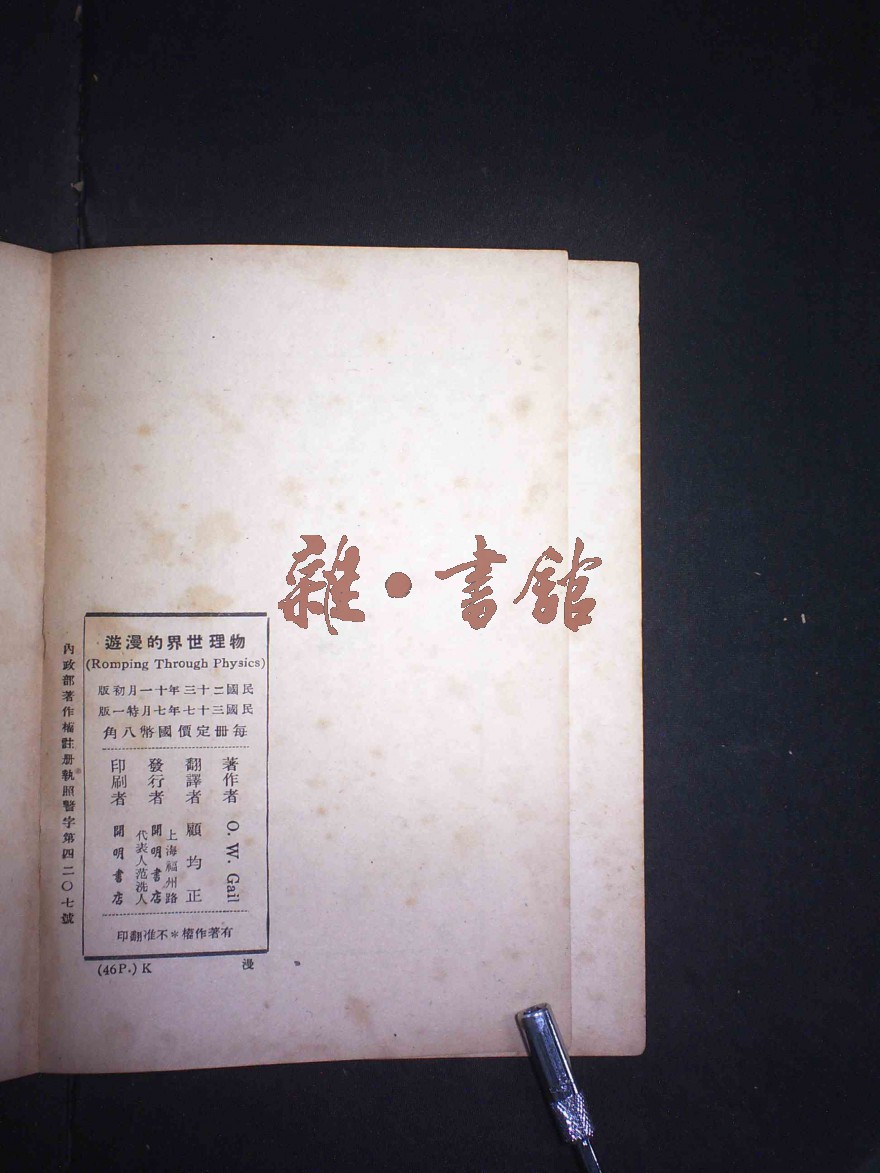 雜•書館
物理世界的漫遊
(Romping Through Physics)
民國二十三年十一月初版
民國三十七年七月特一版
每冊定價國幣八角
著作者 O. W. Gail
翻譯者 顧均正
上海福州路
發行者 開明書店
代表人范洗人
印刷者 開明書店
有著作權*不准翻印
內政部著作權註册執照警字第四二〇七號
(46P.) K 漫